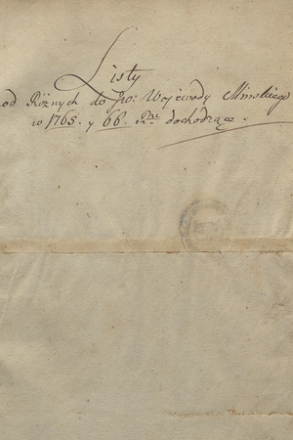 Listy
od Różnych do JW: Wojewody Mińskiego
w 1765. y 66. Rku dochodzące.